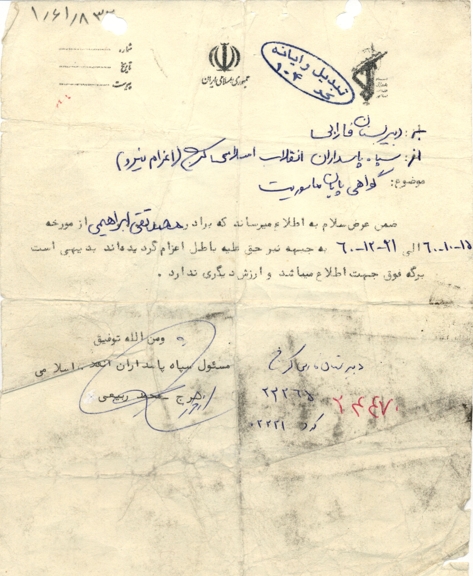 ۱/۶۱/۸۳۳
شماره
تاریخ
پیوست
جمهوری اسلامی ایران
تبدیل و رایانه
به: دبیرستان فارابی
از: سپاه پاسداران انقلاب اسلامی کرج (اعزام نیرو)
موضوع: گواهی پایان ماموریت
ضمن عرض سلام به اطلاع میرساند که برادر محمد تقی ابراهیمی از مورخه
۶۰-۱۰-۱۵ الی ۲۱-۱۲-۶۰ به جبهه نبرد حق علیه باطل اعزام گردیده‌اند بدیهی است
برگه فوق جهت اطلاع میباشد و ارزش دیگری ندارد.
ومن الله توفیق
مسئول سپاه پاسداران انقلاب اسلامی
کرج محمد ربیعی
کرج
۲۲۲۶۵
۲۴۴۷۰
کد ۰۲۲۲۱